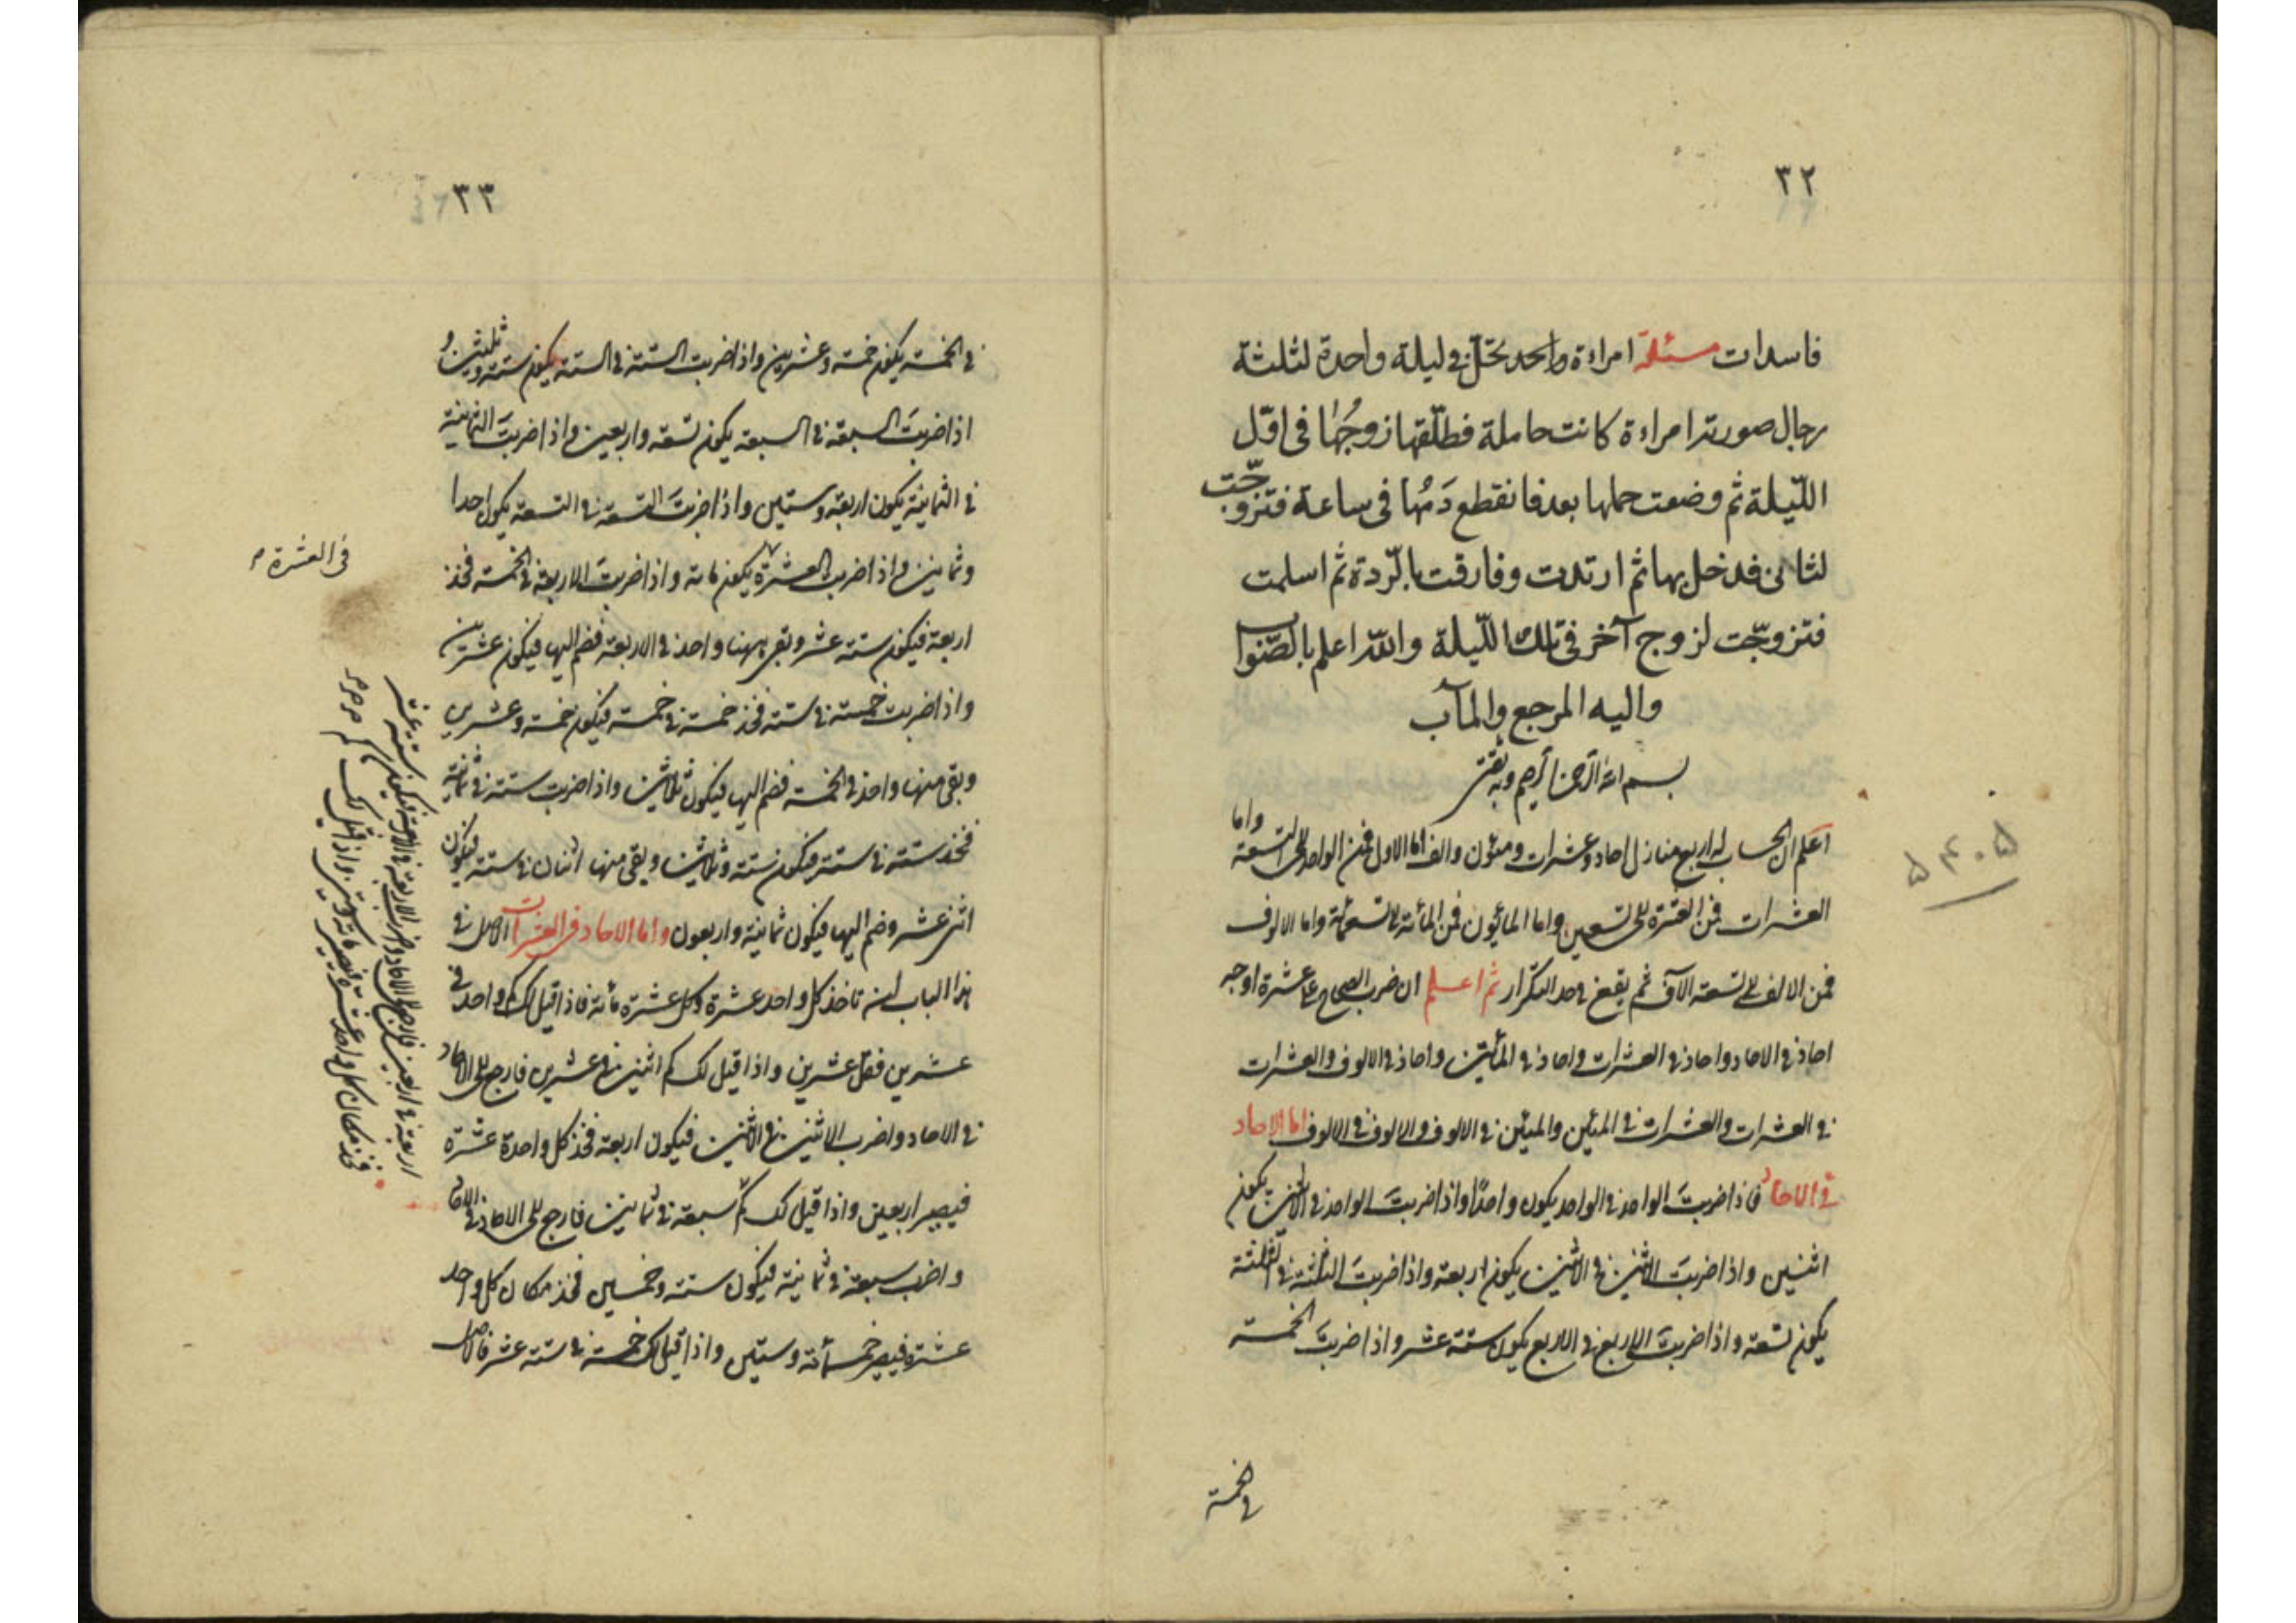 ٣٢
فاسدات مسئلة امراءة واحد تحل في ليلة واحدة لثلثة
رجال صورته امراءة كانت حاملة فطلّقها زوجُها فى اوّل
اللّيلة ثم وضعت حملها بعد فانقطع دَمُها فى ساعة فتزوّجت
لثانى فدخل بها ثم ارتدت وفارقت بالرّدة ثم اسلمت
فتزوجّت لزوج آخر فى تلك اللّيلة والله اعلم بالصّواب
واليه المرجع والمآب
بسم الله الرحمن الرحيم وبه ثقتى
اعلم ان الحساب له اربع منازل احاد وعشرات ومئون والف اما الاول فمن الواحد الى التسعة واما
العشرات فمن العشرة الى تسعين واما المائيون فمن المائة الى تسعمائة واما الالوف
فمن الالف الى تسعة الآف ثم يقع فى حد التكرار ثم اعلم ان ضرب الصحاح على عشرة اوجه
احاد فى الاحاد واحاد فى العشرات واحاد فى المأتين واحاد فى الالوف والعشرات
فى العشرات والعشرات فى المئين والمئين فى الالوف والالوف فى الالوف اما الاحاد
فى الاحاد فاذا ضربتَ الواحد فى الواحد يكون واحدًا واذا ضربتَ الواحد فى الاثنين يكون
اثنين واذا ضربتَ الاثنين فى الاثنين يكون اربعة واذا ضربتَ الثلثة فى الثلثة
يكون تسعة واذا ضربتَ الاربع فى الاربع يكون ستة عشر واذا ضربتَ الخمسة
فى الخمسة
٥٤٠٥
٣٣
فى الخمسة يكون خمسة وعشرين واذا ضربت الستة فى الستة يكون ستة وثلثين و
اذا ضربتَ السبعة فى السبعة يكون تسعة واربعين واذا ضربتَ الثمانية
فى الثمانية يكون اربعة وستين واذا ضربتَ التسعة فى التسعة يكون احدا
وثمانين واذا ضربت العشرة يكون مائة واذا ضربتَ الاربعة فى الخمسة فخذ
اربعة فيكون ستة عشر وبقى ههنا واحد فى الاربعة فضم اليها فيكون عشرين
واذا ضربت خمسة فى ستة فخذ خمسة فى خمسة فيكون خمسة وعشرين
وبقى منها واحد فى الخمسة فضم اليها فيكون ثلاثين واذا ضربت ستة فى ثمانية
فخذ ستة فى ستة فيكون ستة وثلاثين وبقى منها اثنان فى ستة فيكون
اثنى عشر وضم اليها فيكون ثمانية واربعون واما الاحاد فى العشرات الاصل فى
هذا الباب ان تاخذ كل واحد عشرة وكل عشرة مأئة فاذا قيل لك كم واحد فى
عشرين فقل عشرين واذا قيل لك كم اثنين فى عشرين فارجع الى الاحاد
فى الاحاد واضرب الاثنين فى الاثنين فيكون اربعة فخذ كل واحدة عشرة
فيصير اربعين واذا قيل لك كم سبعة فى ثمانين فارجع الى الاحاد فى الاحاد
واضرب سبعة فى ثمانية فيكون ستة وخمسين فخذ مكان كل واحد
عشرة فيصير خمسمأئة وستين واذا قيل لك خمسة فى ستة عشر فالاصل
فى العشرة
اربعة فى اربعين فارجع الى الاحاد واضرب الاربعة فى الاربعة فيكون ستة عشر
فخذ مكان كل واحد عشرة فيصير مائة وستين واذا قيل لك كم